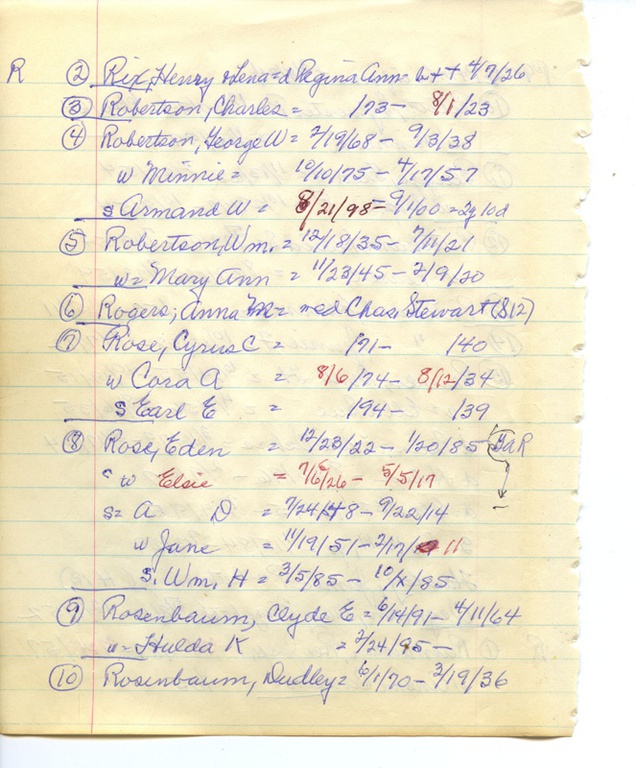 R ② Rix, Henry & Lena = d Regina Ann - b + + 4/7/26
③ Robertson, Charles = /73 - 8/1/23
④ Robertson, George W = 2/19/68 - 9/3/38
w Minnie = 10/10/75 - 4/17/57
s Armand W = 8/21/98 - 9/1/00 = 2y 10d
⑤ Robertson, Wm. = 12/18/35 - 7/11/21
w = Mary Ann = 11/23/45 - 2/9/20
⑥ Rogers, Anna M = med Chas. Stewart (S12)
⑦ Rose, Cyrus C = /71 - /40
w Cora A = 8/6/74 - 8/12/34
s Earl E = /94 - /39
⑧ Rose, Eden = 12/23/22 - 1/20/85 GAR
w Elsie = 7/6/26 - 5/5/17
s = A D = 7/24/48 - 9/22/14
w Jane = 11/19/51 - 2/17/11
s. Wm. H = 3/5/85 - 10/x/85
⑨ Rosenbaum, Clyde E = 6/14/91 - 4/11/64
w = Hulda K = 2/24/95 -
⑩ Rosenbaum, Dudley = 6/1/70 - 3/19/36